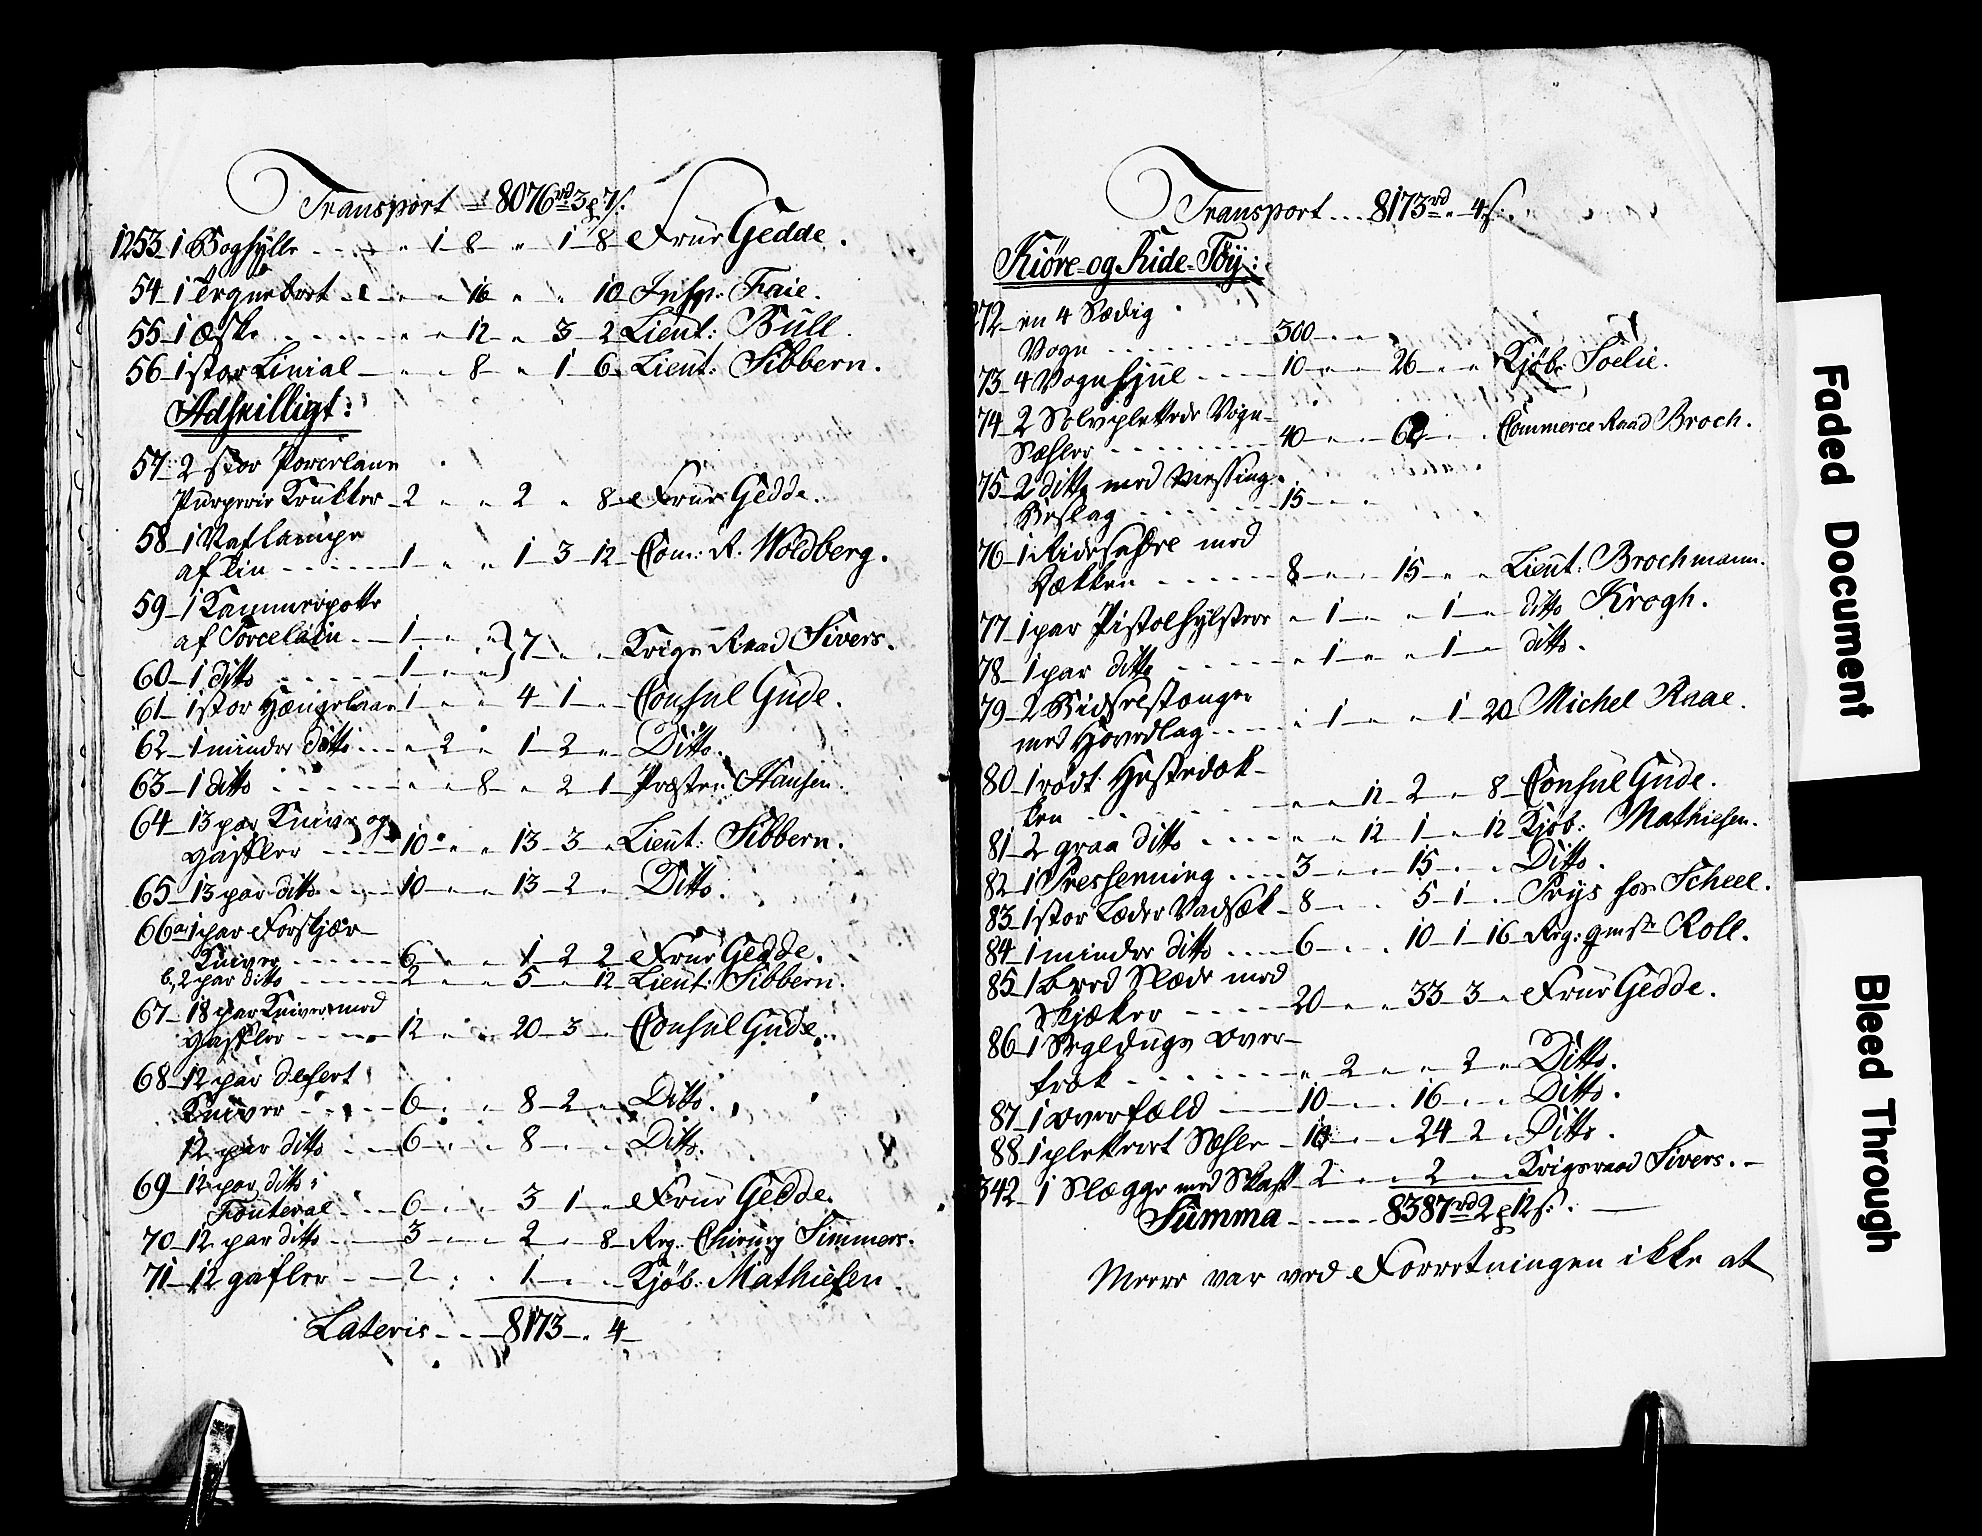 Transport = 8076rd 3p 7s.
1253 1 Boghylle - - - " 1 8 " 1 8 Frue Gedde.
54 1 Tegnebræt - - " " 16 " " 10 Insp: Faie.
55 1 Æske - - - - " " 12 " 3 2 Lieut: Bull.
56 1 stor Linial - " " 8 " 1 6 Lieut: Sibbern.
Adskilligt:
57 2 stor Porcelain
Purperie Krukker 2 " " 2 " 8 Frue Gedde.
58 1 Natlampe
af tin - - - - - 1 " " 1 3 12 Com: R: Woldberg.
59 1 Kammerpotte
af Porcelain - - 1 " " } 7 " " Krigs Raad Sivers.
60 1 ditto - - - - 1 " "
61 1 stor 1 " " 4 1 " Consul Gude.
62 1 mindre ditto - - " 2 " 1 2 " Ditto.
63 1 ditto - - - - " " 8 " 2 1 Præsten Hansen.
64 13 par Knive og
Gafler - - - 10 " " 13 3 " Lieut: Sibbern.
65 13 par ditto - - 10 " " 13 2 " Ditto.
66 a, 1 par Forskjær-
Kniver - - - - 6 " " 1 2 2 Frue Gedde.
b, 2 par ditto - - - 2 " " 5 " 12 Lieut: Sibbern.
67 18 par Kniver med
Gafler - - - - 12 " " 20 3 " Consul Gude.
68 12 par desert
Kniver - - - - 6 " " 8 2 " Ditto.
12 par ditto - - 6 " " 8 " " Ditto.
69 12 par ditto i
Fouteral - - 6 " " 3 1 " Frue Gedde.
70 12 par ditto - - 3 " " 2 " 8 Reg: Chirurg Simmers.
71 12 gafler - - 2 " " 1 " " Kjøb: Mathiesen
Lateris - - - 8173 " 4
Transport . . . 8173rd " 4s.
Kiøre- og Ride-Tøy:
272 en 4 Sædig
Vogn - - - - - - - 300 " "
73 4 Vognhjul - - - - 10 " " 26 " " Kjøb: Soelie.
74 2 Sølvpletterede Vogn-
Sæhler - - - - - - - 40 " " 62 " " Commerce Raad Broch.
75 2 ditto med Messing
Beslag - - - - - - - 15 " "
76 1 Ridesahdle med
Dækken - - - - - 8 " " 15 " " Lieut: Brochmann.
77 1 par Pistolhylstere " 1 " " 1 " ditto Krogh.
78 1 par ditto - - - - - " 1 " " 1 " ditto.
79 2 Bidselstænger
med Hovedlag - - - " 1 " " 1 20 Michel Raae.
80 1 rødt Hestedæk-
ken - - - - - " " 12 2 " 8 Consul Gude.
81 2 graa ditto - - - - " " 12 1 " 12 Kjøb: Mathiesen.
82 1 Pressenning - - - 3 " " 15 " " Ditto.
83 1 stor Læder Vadsæk - 8 " " 5 1 " Prys for Scheel.
84 1 mindre ditto - - - 6 " " 10 1 16 Reg: qmstr Roll.
85 1 bred Slæde med
Skjæker - - - - - 20 " " 33 3 " Frue Gedde.
86 1 Segldugs over-
frak - - - - - - " 2 " " 2 " Ditto.
87 1 overfæld - - - 10 " " 16 " " Ditto.
88 1 pletteret Sæhle - 10 " " 24 2 " Ditto.
342 1 Slægge med Skaft 2 " " 2 " " Krigsraad Sivers. -
Summa - - - - - 8387rd 2p 12s.
Meere var ved Forretningen ikke at
Faded Document
Bleed Through